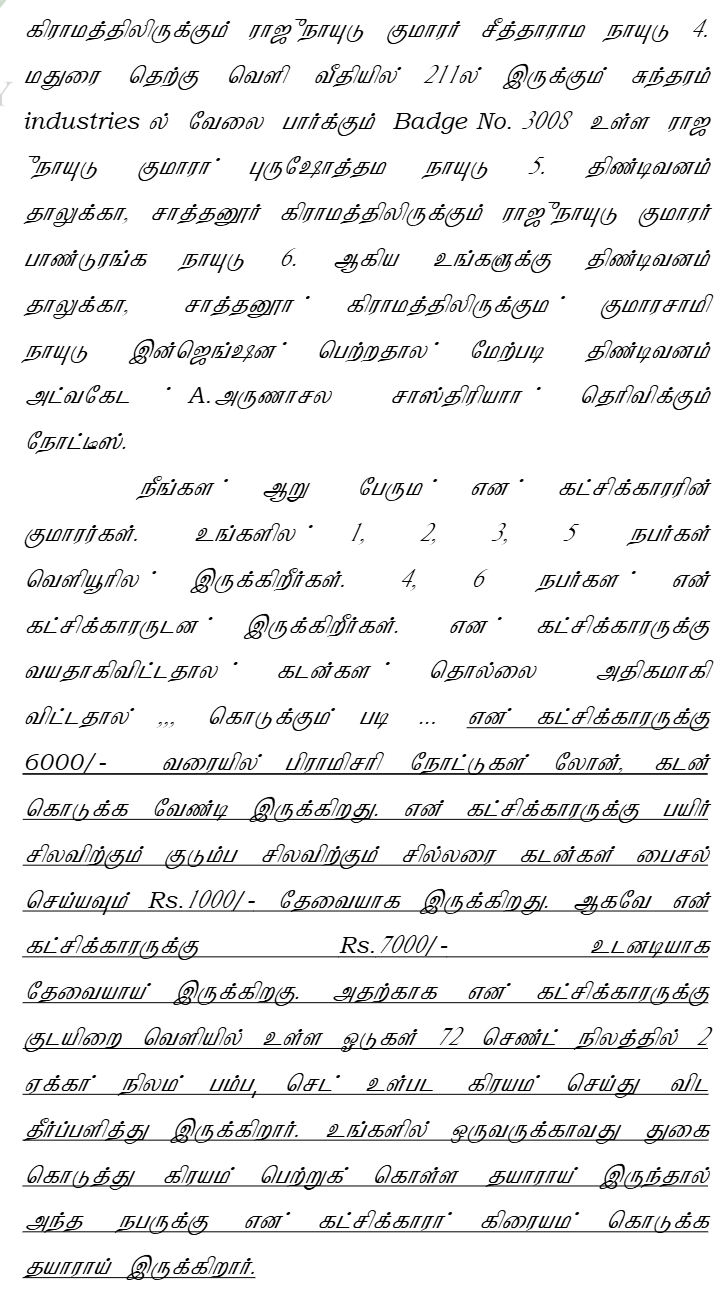 கிராமத்திலிருக்கும் ராஜூநாயுடு குமாரர் சீத்தாராம நாயுடு 4.
மதுரை தெற்கு வெளி வீதியில் 211ல் இருக்கும் சுந்தரம்
industries ல் வேலை பார்க்கும் Badge No. 3008 உள்ள ராஜ
ூநாயுடு குமாரா் புருஷோத்தம நாயுடு 5. திண்டிவனம்
தாலுக்கா, சாத்தனூர் கிராமத்திலிருக்கும் ராஜூநாயுடு குமாரர்
பாண்டுரங்க நாயுடு 6. ஆகிய உங்களுக்கு திண்டிவனம்
தாலுக்கா, சாத்தனூா் கிராமத்திலிருக்கும் குமாரசாமி
நாயுடு இன்ஜெங்ஷன் பெற்றதால் மேற்படி திண்டிவனம்
அட்வகேட் A.அருணாசல சாஸ்திரியாா் தெரிவிக்கும்
நோட்டீஸ்.
நீங்கள் ஆறு பேரும் என் கட்சிக்காரரின்
குமாரர்கள். உங்களில் 1, 2, 3, 5 நபர்கள்
வெளியூரில் இருக்கிறீர்கள். 4, 6 நபர்கள் என்
கட்சிக்காரருடன் இருக்கிறீர்கள். என் கட்சிக்காரருக்கு
வயதாகிவிட்டதால் கடன்கள் தொல்லை அதிகமாகி
விட்டதால் ,,, கொடுக்கும் படி ... என் கட்சிக்காரருக்கு
6000/- வரையில் பிராமிசரி நோட்டுகள் லோன், கடன்
கொடுக்க வேண்டி இருக்கிறது. என் கட்சிக்காரருக்கு பயிர்
சிலவிற்கும் குடும்ப சிலவிற்கும் சில்லரை கடன்கள் பைசல்
செய்யவும் Rs.1000/- தேவையாக இருக்கிறது. ஆகவே என்
கட்சிக்காரருக்கு Rs.7000/- உடனடியாக
தேவையாய் இருக்கிறகு. அதற்காக என் கட்சிக்காரருக்கு
குடயிறை வெளியில் உள்ள ஓடுகள் 72 செண்ட் நிலத்தில் 2
ஏக்கா் நிலம் பம்ப, செட் உள்பட கிரயம் செய்து விட
தீர்ப்பளித்து இருக்கிறார். உங்களில் ஒருவருக்காவது துகை
கொடுத்து கிரயம் பெற்றுக் கொள்ள தயாராய் இருந்தால்
அந்த நபருக்கு என் கட்சிக்காரா் கிரையம் கொடுக்க
தயாராய் இருக்கிறார்.